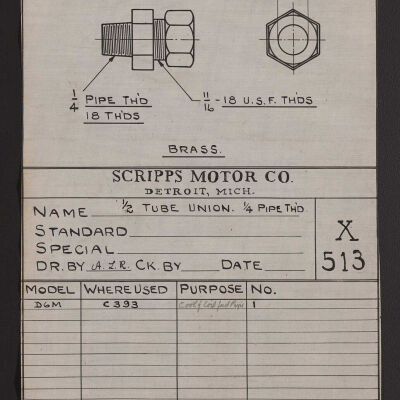 1/4 PIPE TH'D
18 TH'DS
11/16 - 18 U.S.F. TH'DS
BRASS.
SCRIPPS MOTOR CO.
DETROIT, MICH.
NAME 1/2 TUBE UNION. 1/4 PIPE TH'D
STANDARD
SPECIAL
DR. BY A.L.R. CK. BY DATE
X
513
MODEL WHERE USED PURPOSE NO.
D6M C393 1